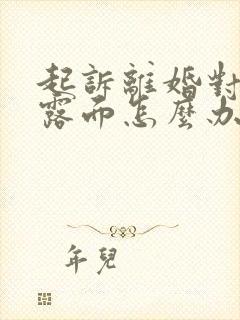 起訴離婚對
露而怎麼办
年兒